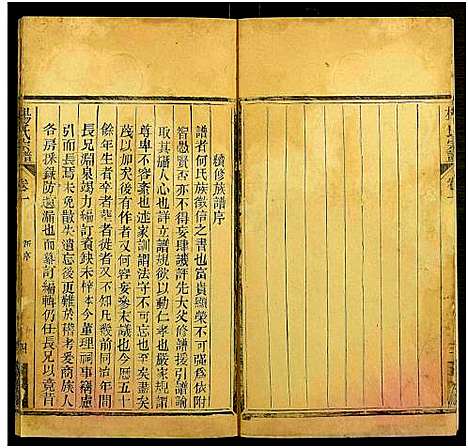 楊氏宗譜
卷一
三
續修族譜序
譜者何氏族徵信之書也富貴顯榮不可彊為依附
智愚賢否亦不得妄肆譏評先大父修譜援引譜諭
其取繫人心也詳立譜規欲以動仁孝也嚴家規謂
尊卑不容紊也述家訓謂法守不可忘也至矣盡矣
蔑以加矣後有作者又何容妄參末議也今歷五十
餘年生者壯者徙者又不知凡幾前同治年間
長兄淵泉竭力編訂賚缺未梓本今董理祠事稱憲
引而長焉未免散失遺忘後更難於稽考爰商族人
各房採錄防遺漏也而纂訂編輯仍任長兄以竟昔
楊氏宗譜
卷一
新序
四